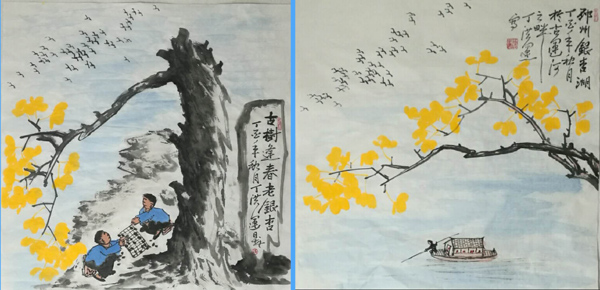 古樹逢春老銀杏
丁酉年秋月丁洪運
邳州銀杏湖
丁酉年秋月
於古運河
之畔
丁洪運
寫